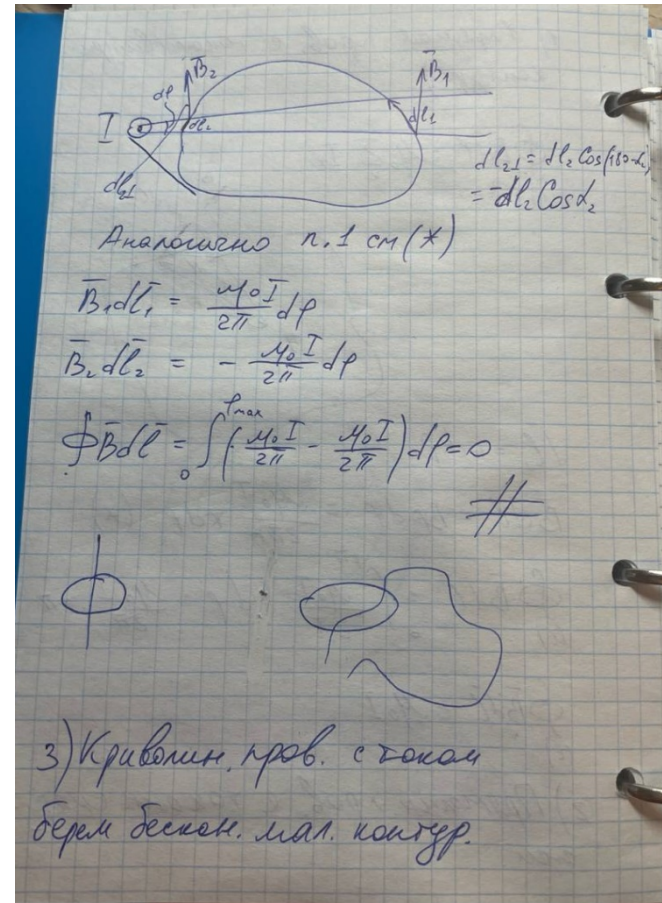 B̄₂
B̄₁
dφ
I
dl₂
dl₁
dl₂⊥
dl₂⊥ = dl₂ Cos(180-α₂)
= -dl₂ Cosα₂
Аналогично п.1 см (*)
B̄₁dl̄₁ = μ₀I/2π dφ
B̄₂dl̄₂ = - μ₀I/2π dφ
∮B̄dl̄ = ∫₀^φmax (μ₀I/2π - μ₀I/2π) dφ = 0
3) Криволин. пров. с током
берем бескон. мал. контур.